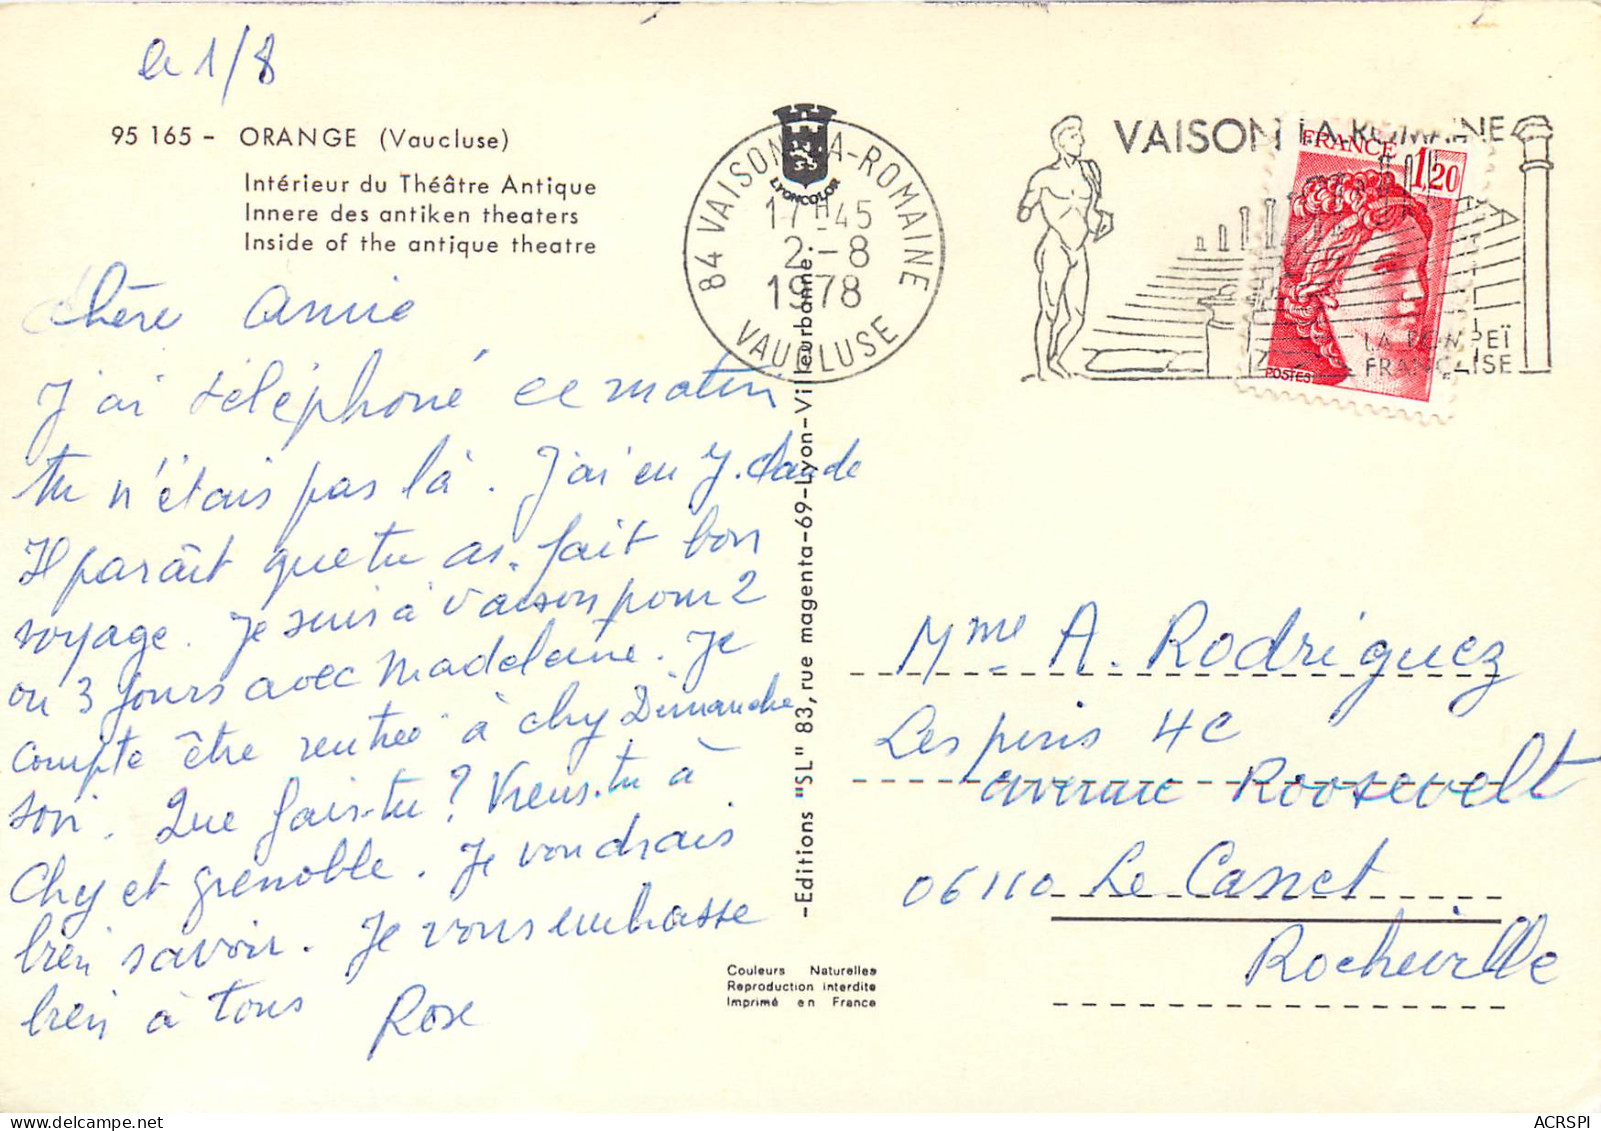 le 1/8
95 165 - ORANGE (Vaucluse)
Intérieur du Théâtre Antique
Innere des antiken theaters
Inside of the antique theatre
Chère Annie
J'ai téléphoné ce matin
tu n'étais pas là. J'ai eu J. Claude
Il paraît que tu as fait bon
voyage. Je suis à Vaison pour 2
ou 3 jours avec Madeleine. Je
compte être rentrée à Chy Dimanche
soir. Que fais-tu? Viens-tu à
Chy et Grenoble. Je voudrais
bien savoir. Je vous embrasse
bien à tous Rose
LYONCOLOR
84 VAISON-LA-ROMAINE
17H45
2-8
1978
VAUCLUSE
VAISON LA ROMAINE
LA POMPEÏ
FRANÇAISE
FRANCE
1,20
POSTES
-Editions "SL" 83, rue magenta-69-Lyon-Villeurbanne.-
Mme A. Rodriguez
Les pins 4C
avenue Roosevelt
06110 Le Cannet
Rocheville
Couleurs Naturelles
Reproduction interdite
Imprimé en France
ACRSPI